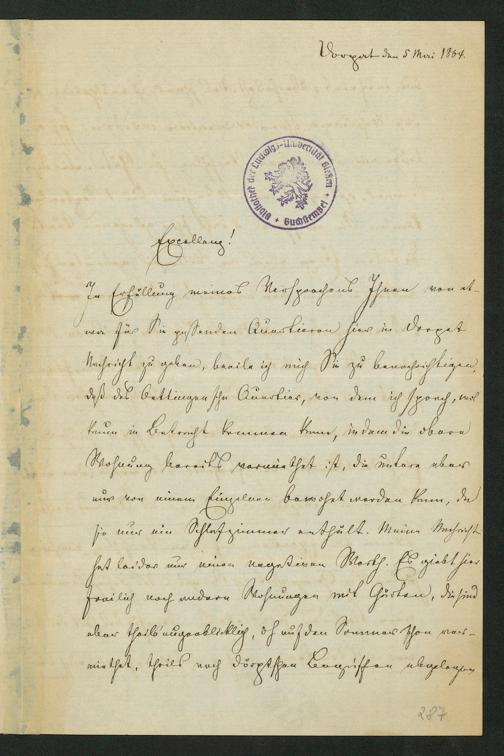 Dorpat den 5 Mai 1864.
Bibliothek der Ludwigs-Universität Gießen
Buchstempel
Excellenz!
In Erfüllung meines Versprechens Ihnen von et-
wa für Sie passenden Quartieren hier in Dorpat
Nachricht zu geben, beeile ich mich Sie zu benachrichtigen,
daß das Oettingensche Quartier, von dem ich sprach, wohl
kaum in Betracht kommen kann, indem die obere
Wohnung bereits vermiethet ist, die untere aber
nur von einem Einzelnen bewohnt werden kann, da
sie nur ein Schlafzimmer enthält. Meine Nachricht
hat leider nur einen negativen Werth. Es giebt hier
freilich noch andere Wohnungen mit Gärten, die sind
aber theils augenblicklich, d.h. auf den Sommer schon ver-
miethet, theils nach dörptschen Begriffen abgelegen
287